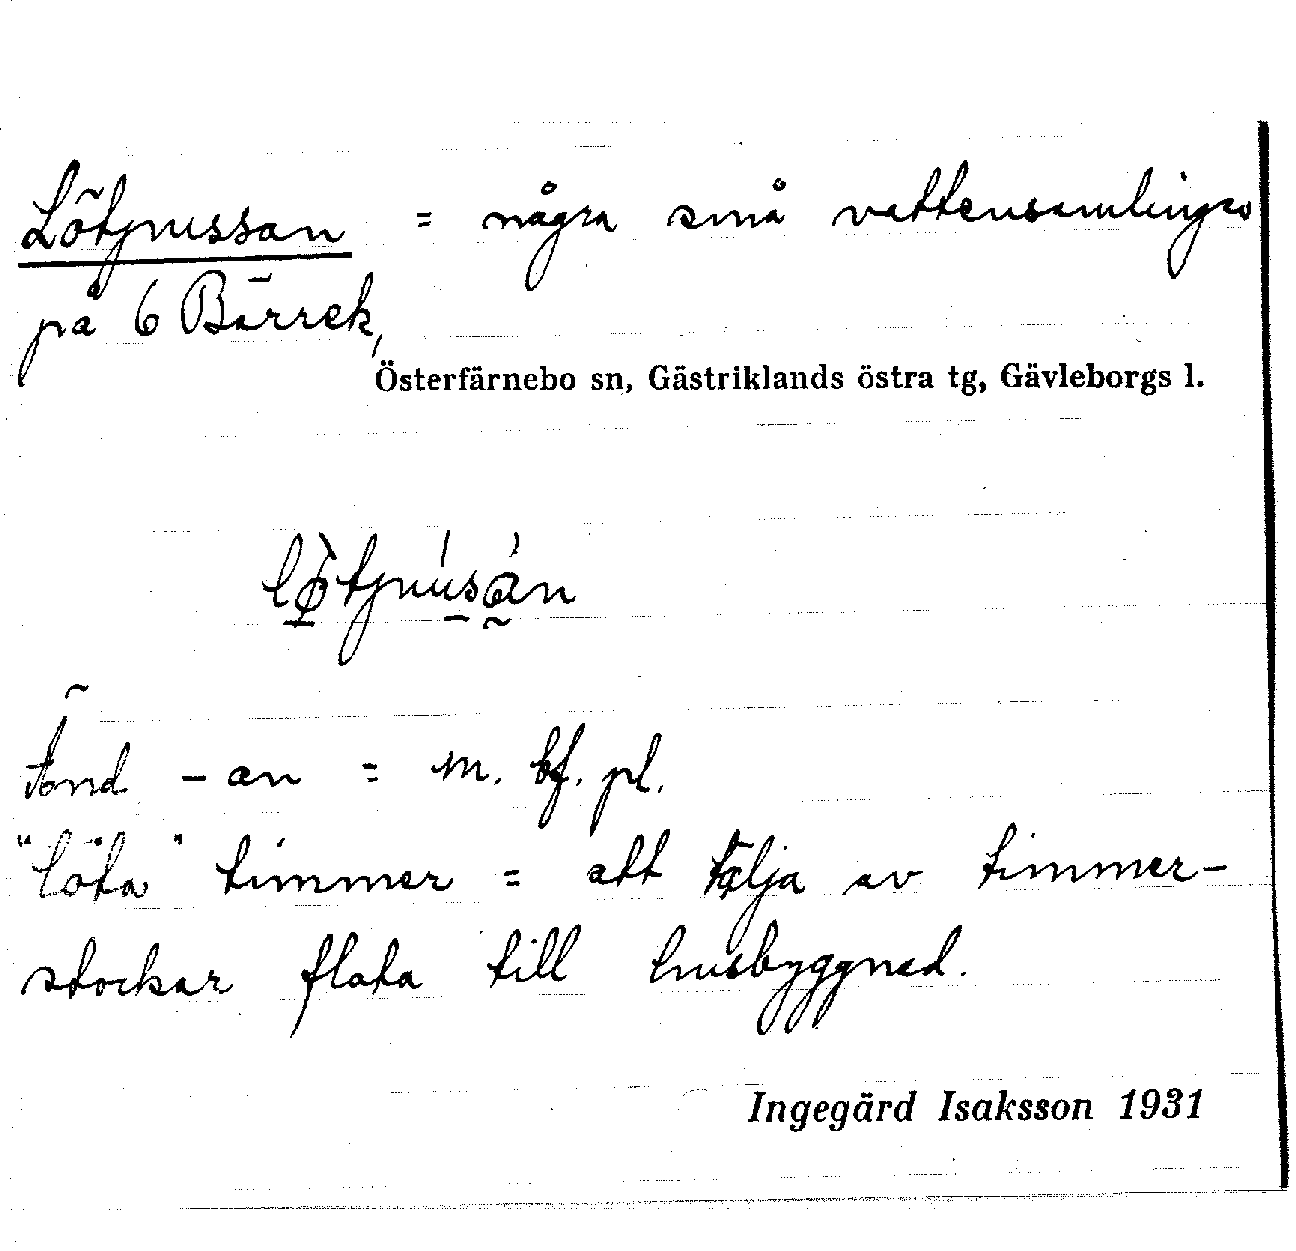 Lötjnussan = några små vattensamlingar
på 6 Bärrek,
Österfärnebo sn, Gästriklands östra tg, Gävleborgs l.
-an = m. bf. pl.
"löta" timmer = att tälja av timmer-
stockar flata till husbyggnad.
Ingegärd Isaksson 1931